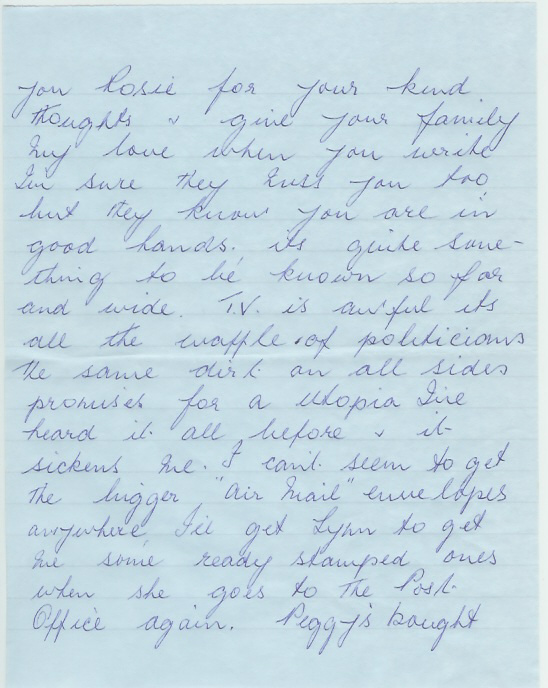 you Rosie for your kind
thoughts & give your family
my love when you write
I'm sure they miss you too
but they know you are in
good hands. its quite some-
thing to be known so far
and wide. T.V. is awful its
all the waffle of politicians
the same dirt on all sides
promises for a Utopia I've
heard it all before & it
sickens me. I can't seem to get
the bigger "Air Mail" envelopes
anywhere, I'll get Lynn to get
me some ready stamped ones
when she goes to the Post
Office again. Peggy's bought